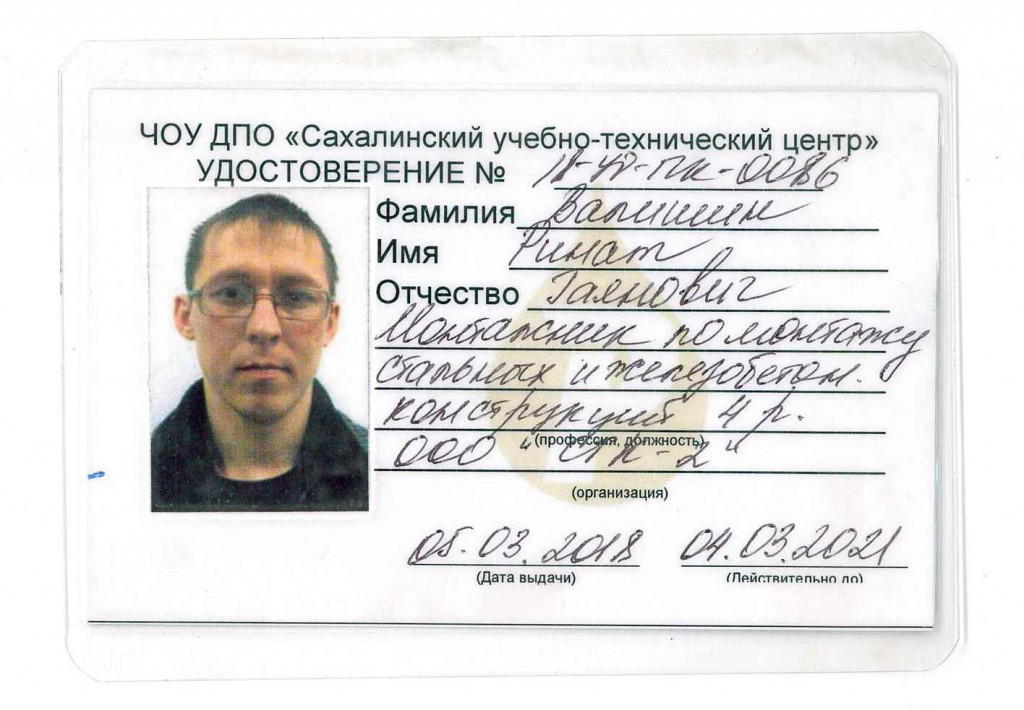 ЧОУ ДПО «Сахалинский учебно-технический центр»
УДОСТОВЕРЕНИЕ № 18-УР-ПК-0086
Фамилия Валишин
Имя Ринат
Отчество Гаянович
Монтажник по монтажу
стальных и железобетон.
конструкций 4 р.
(профессия, должность)
ООО "СТК-2"
(организация)
05.03.2018 04.03.2021
(Дата выдачи) (Действительно до)